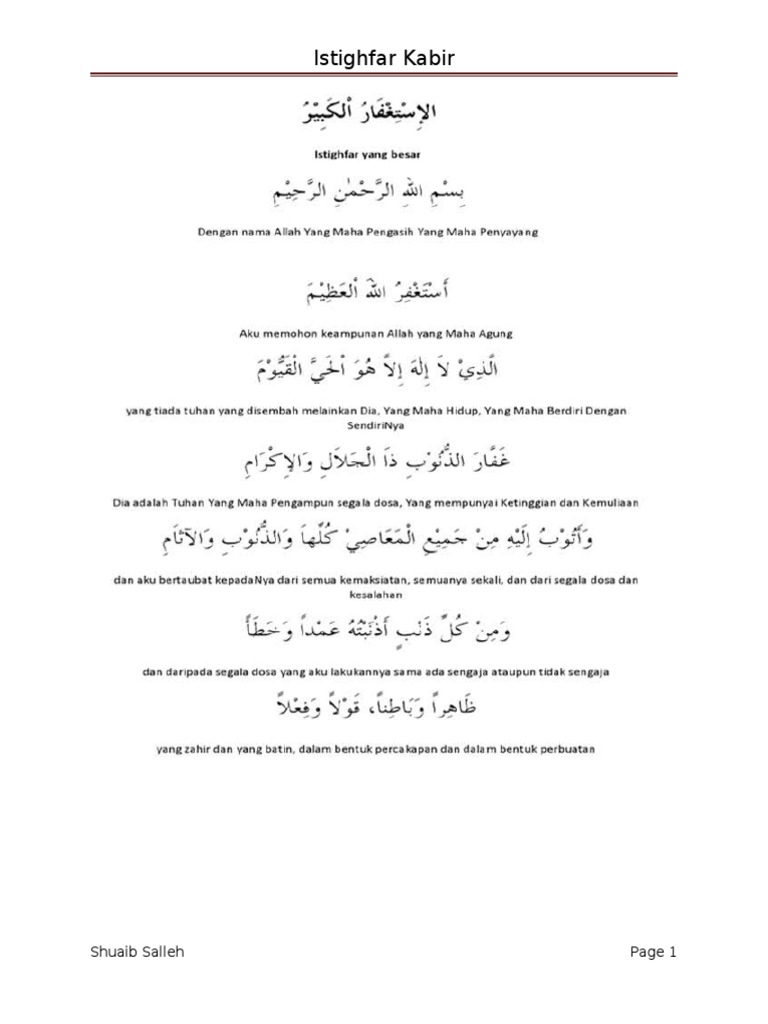 Istighfar Kabir
الإِسْتِغْفَارُ الْكَبِيْرُ
Istighfar yang besar
بِسْمِ اللهِ الرَّحْمٰنِ الرَّحِيْمِ
Dengan nama Allah Yang Maha Pengasih Yang Maha Penyayang
أَسْتَغْفِرُ اللهَ الْعَظِيْمَ
Aku memohon keampunan Allah yang Maha Agung
الَّذِيْ لاَ إِلٰهَ إِلاَّ هُوَ الْحَيَّ الْقَيُّوْمَ
yang tiada tuhan yang disembah melainkan Dia, Yang Maha Hidup, Yang Maha Berdiri Dengan
SendiriNya
غَفَّارَ الذُّنُوْبِ ذَا الْجَلاَلِ وَالإِكْرَامِ
Dia adalah Tuhan Yang Maha Pengampun segala dosa, Yang mempunyai Ketinggian dan Kemuliaan
وَأَتُوْبُ إِلَيْهِ مِنْ جَمِيْعِ الْمَعَاصِيْ كُلِّهَا وَالذُّنُوْبِ وَالآثَامِ
dan aku bertaubat kepadaNya dari semua kemaksiatan, semuanya sekali, dan dari segala dosa dan
kesalahan
وَمِنْ كُلِّ ذَنْبٍ أَذْنَبْتُهُ عَمْداً وَخَطَأً
dan daripada segala dosa yang aku lakukannya sama ada sengaja ataupun tidak sengaja
ظَاهِراً وَبَاطِناً، قَوْلاً وَفِعْلاً
yang zahir dan yang batin, dalam bentuk percakapan dan dalam bentuk perbuatan
Shuaib Salleh Page 1